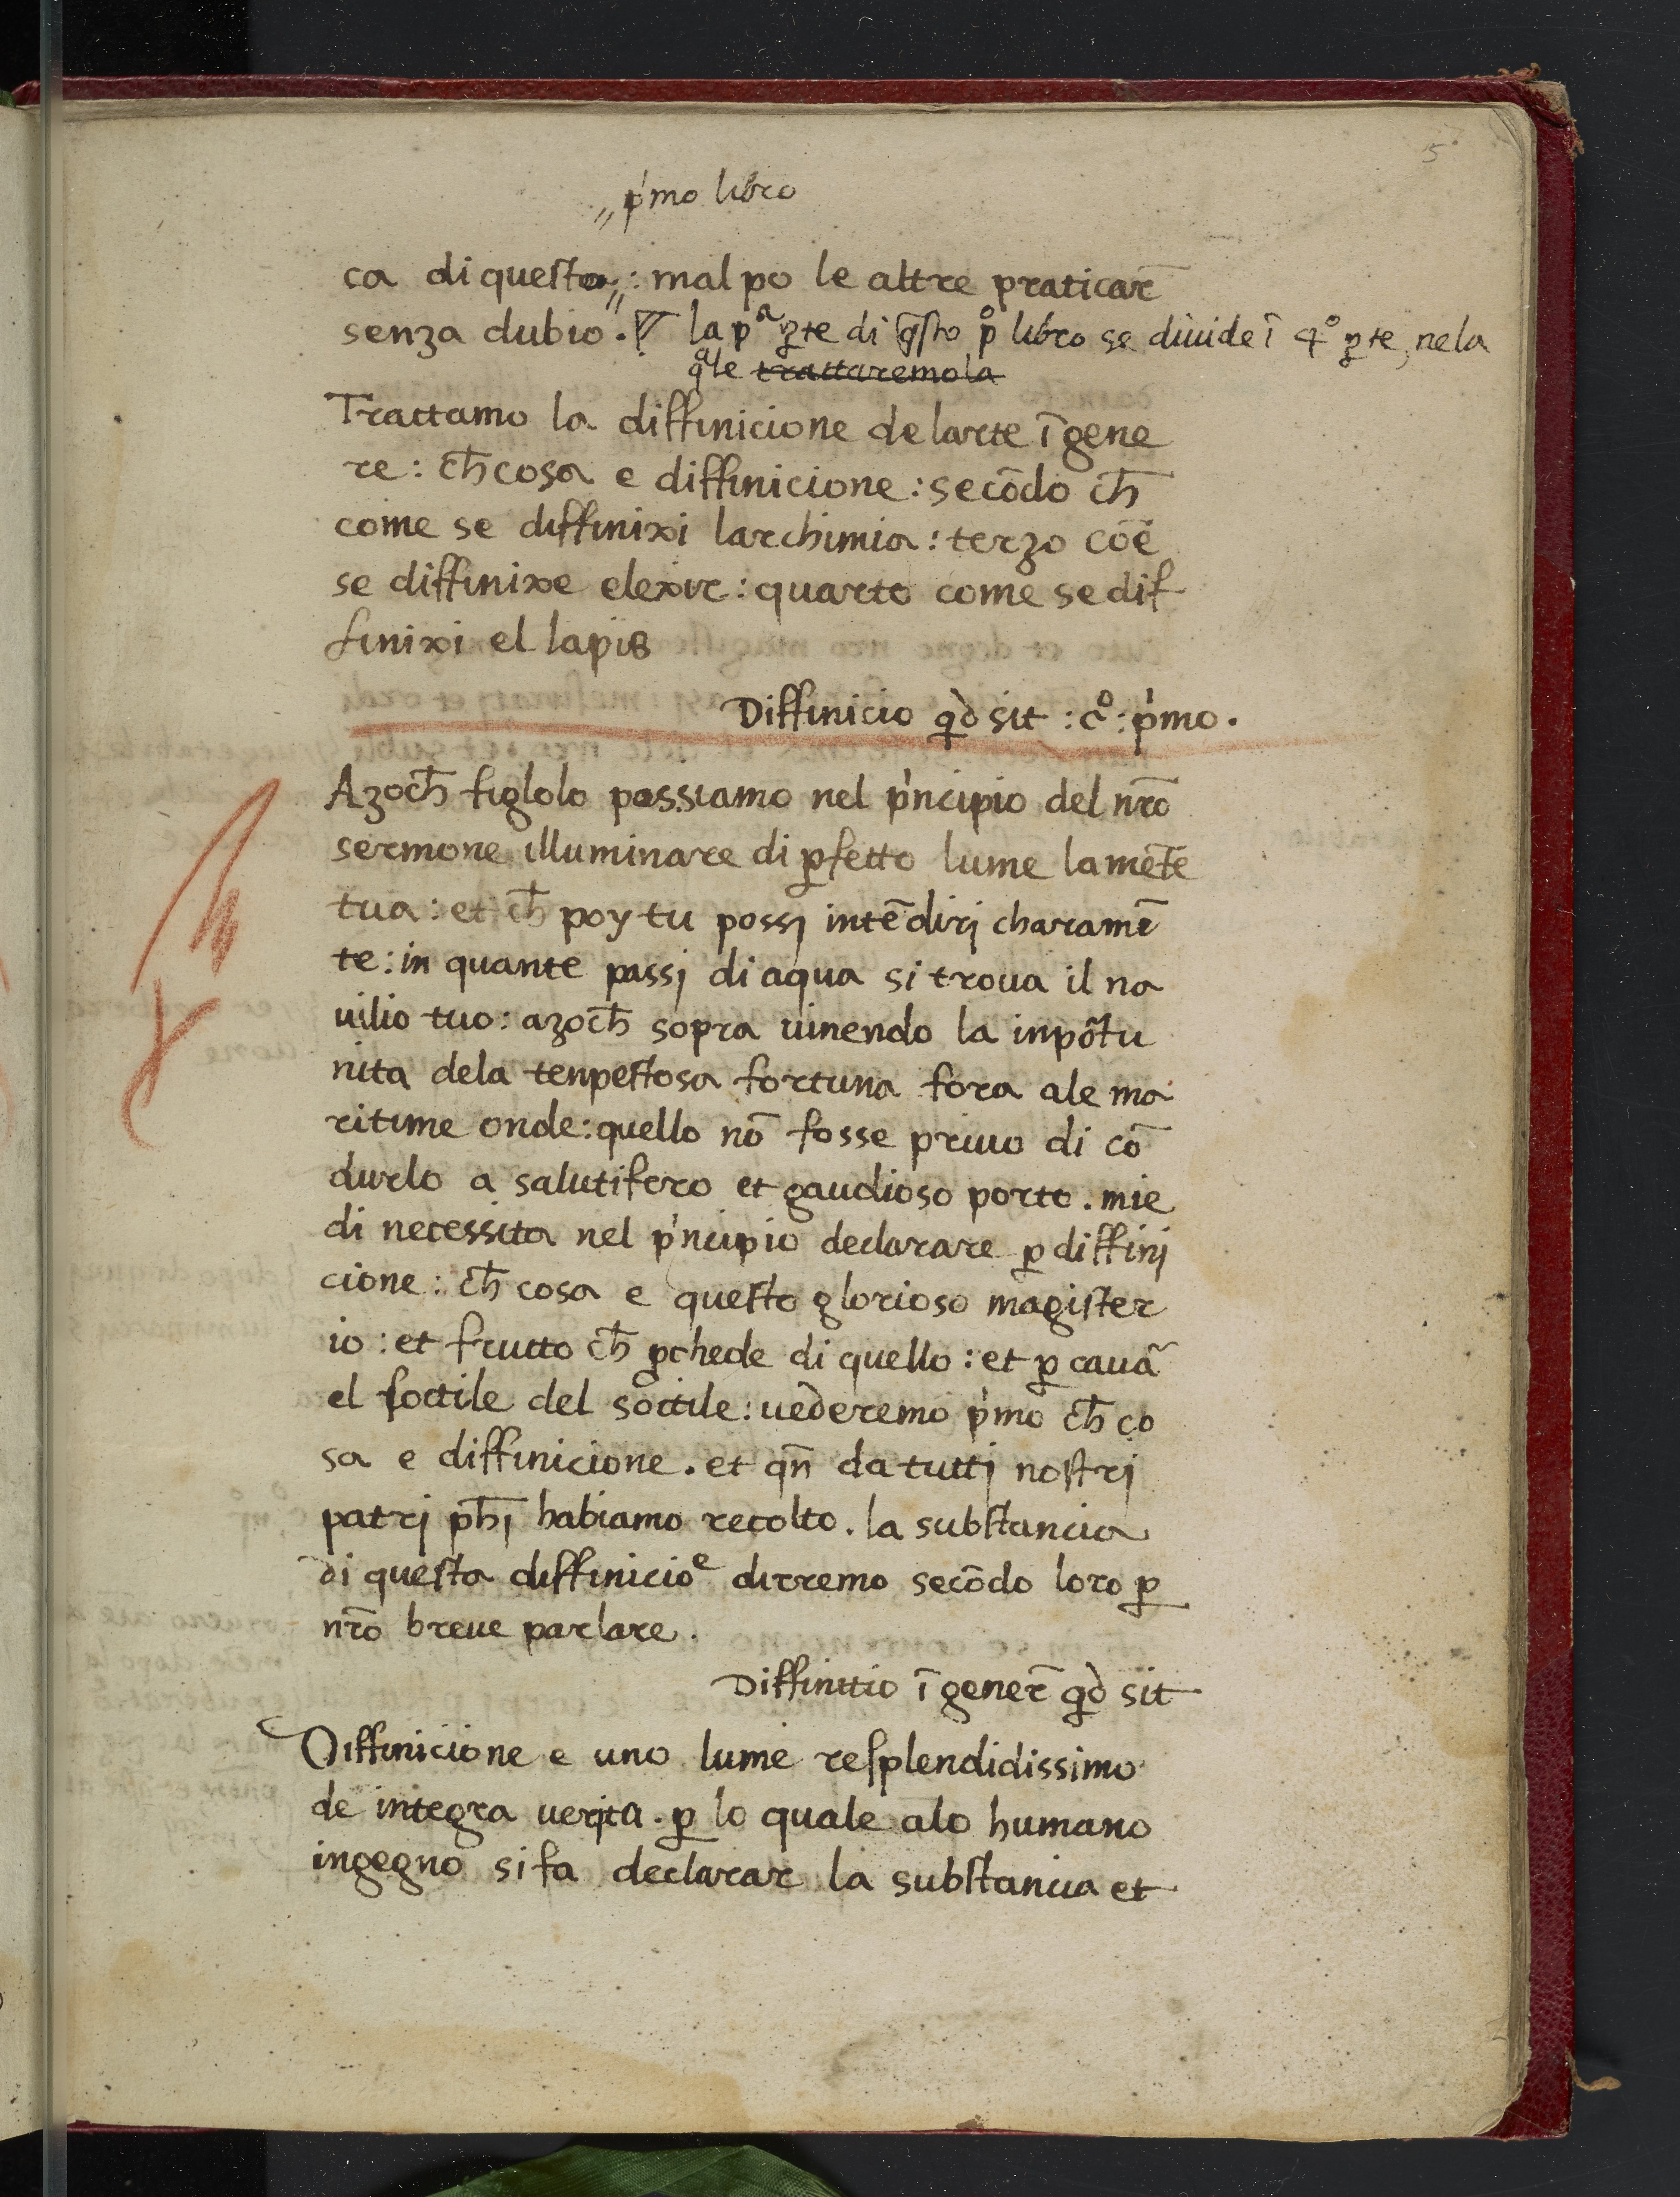 5
„ p'mo libro
ca di questo„: mal po le altre praticar̄
senza dubio. la pᵃ ꝑte di q̄sto p̊ libro se diuide ī 4° ꝑte, nela
qᵃle trattaremola
Trattamo la diffinicione de larte ī gene
re: ch̄ cosa e diffinicione: secōdo ch̄
come se diffinixi larchimia: terzo cōē
se diffinixe elexir: quarto come se dif
finixi el lapis
Diffinicio qd̄ sit: c°: p'mo.
Azoch̄ figlolo possiamo nel p'ncipio del nr̄o
sermone illuminare di ꝑfetto lume la mēte
tua: et ch̄ poy tu possj intēdirj charamē
te: in quante passj di aqua si troua il na
uilio tuo: azoch̄ sopra uinendo la inpōtu
nita dela tenpestosa fortuna fora ale ma
ritime onde: quello nō fosse priuo di cō
durlo a salutifero et gaudioso porto. mie
di necessita nel p'ncipio declarare ꝑ diffinj
cione: ch̄ cosa e questo glorioso magister
io: et frutto ch̄ ꝑchede di quello: et ꝑ cauā
el sottile del sottile: uederemo p'mo ch̄ co
sa e diffinicione. et qn̄ da tuttj nostrj
patrj ph̄j habiamo recolto. la substancia
di questa diffinicioᵉ dirremo secōdo loro ꝑ
nr̄o breue parlare.
Diffinitio ī gener̄ qd̄ sit
Diffinicione e uno lume resplendidissimo
de integra uerjta. ꝑ lo quale alo humano
ingegno si fa declarar la substancia et